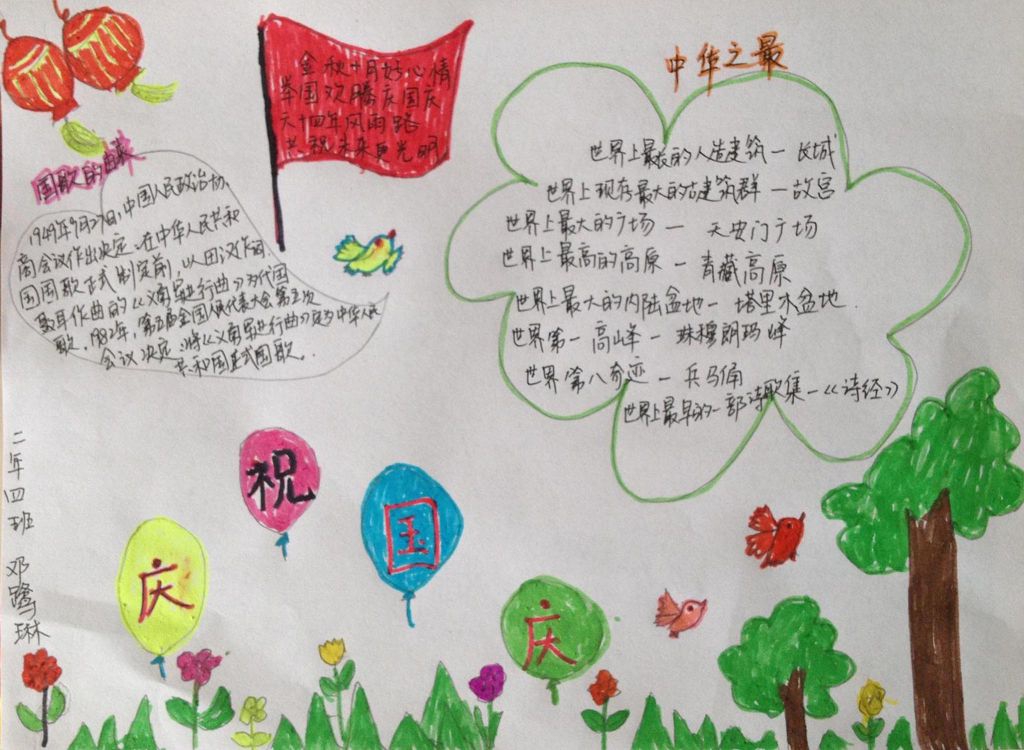 金秋十月好心情
举国欢腾庆国庆
六十四年风雨路
共祝未来更光明
国歌的由来
1949年9月27日,中国人民政治协
商会议作出决定,在中华人民共和
国国歌正式制定前,以田汉作词
聂耳作曲的《义甬军进行曲》为代国
歌.1982年,第五届全国人民代表大会第五次
会议决定,将《义甬军进行曲》定为中华人民
共和国正式国歌.
中华之最
世界上最长的人造建筑—长城
世界上现存最大的古建筑群—故宫
世界上最大的广场—天安门广场
世界上最高的高原—青藏高原
世界上最大的内陆盆地—塔里木盆地.
世界第一高峰—珠穆朗玛峰
世界第八奇迹—兵马俑
世界上最早的一部诗歌集—《诗经》
庆
祝
国
庆
二年四班 邓鹭琳